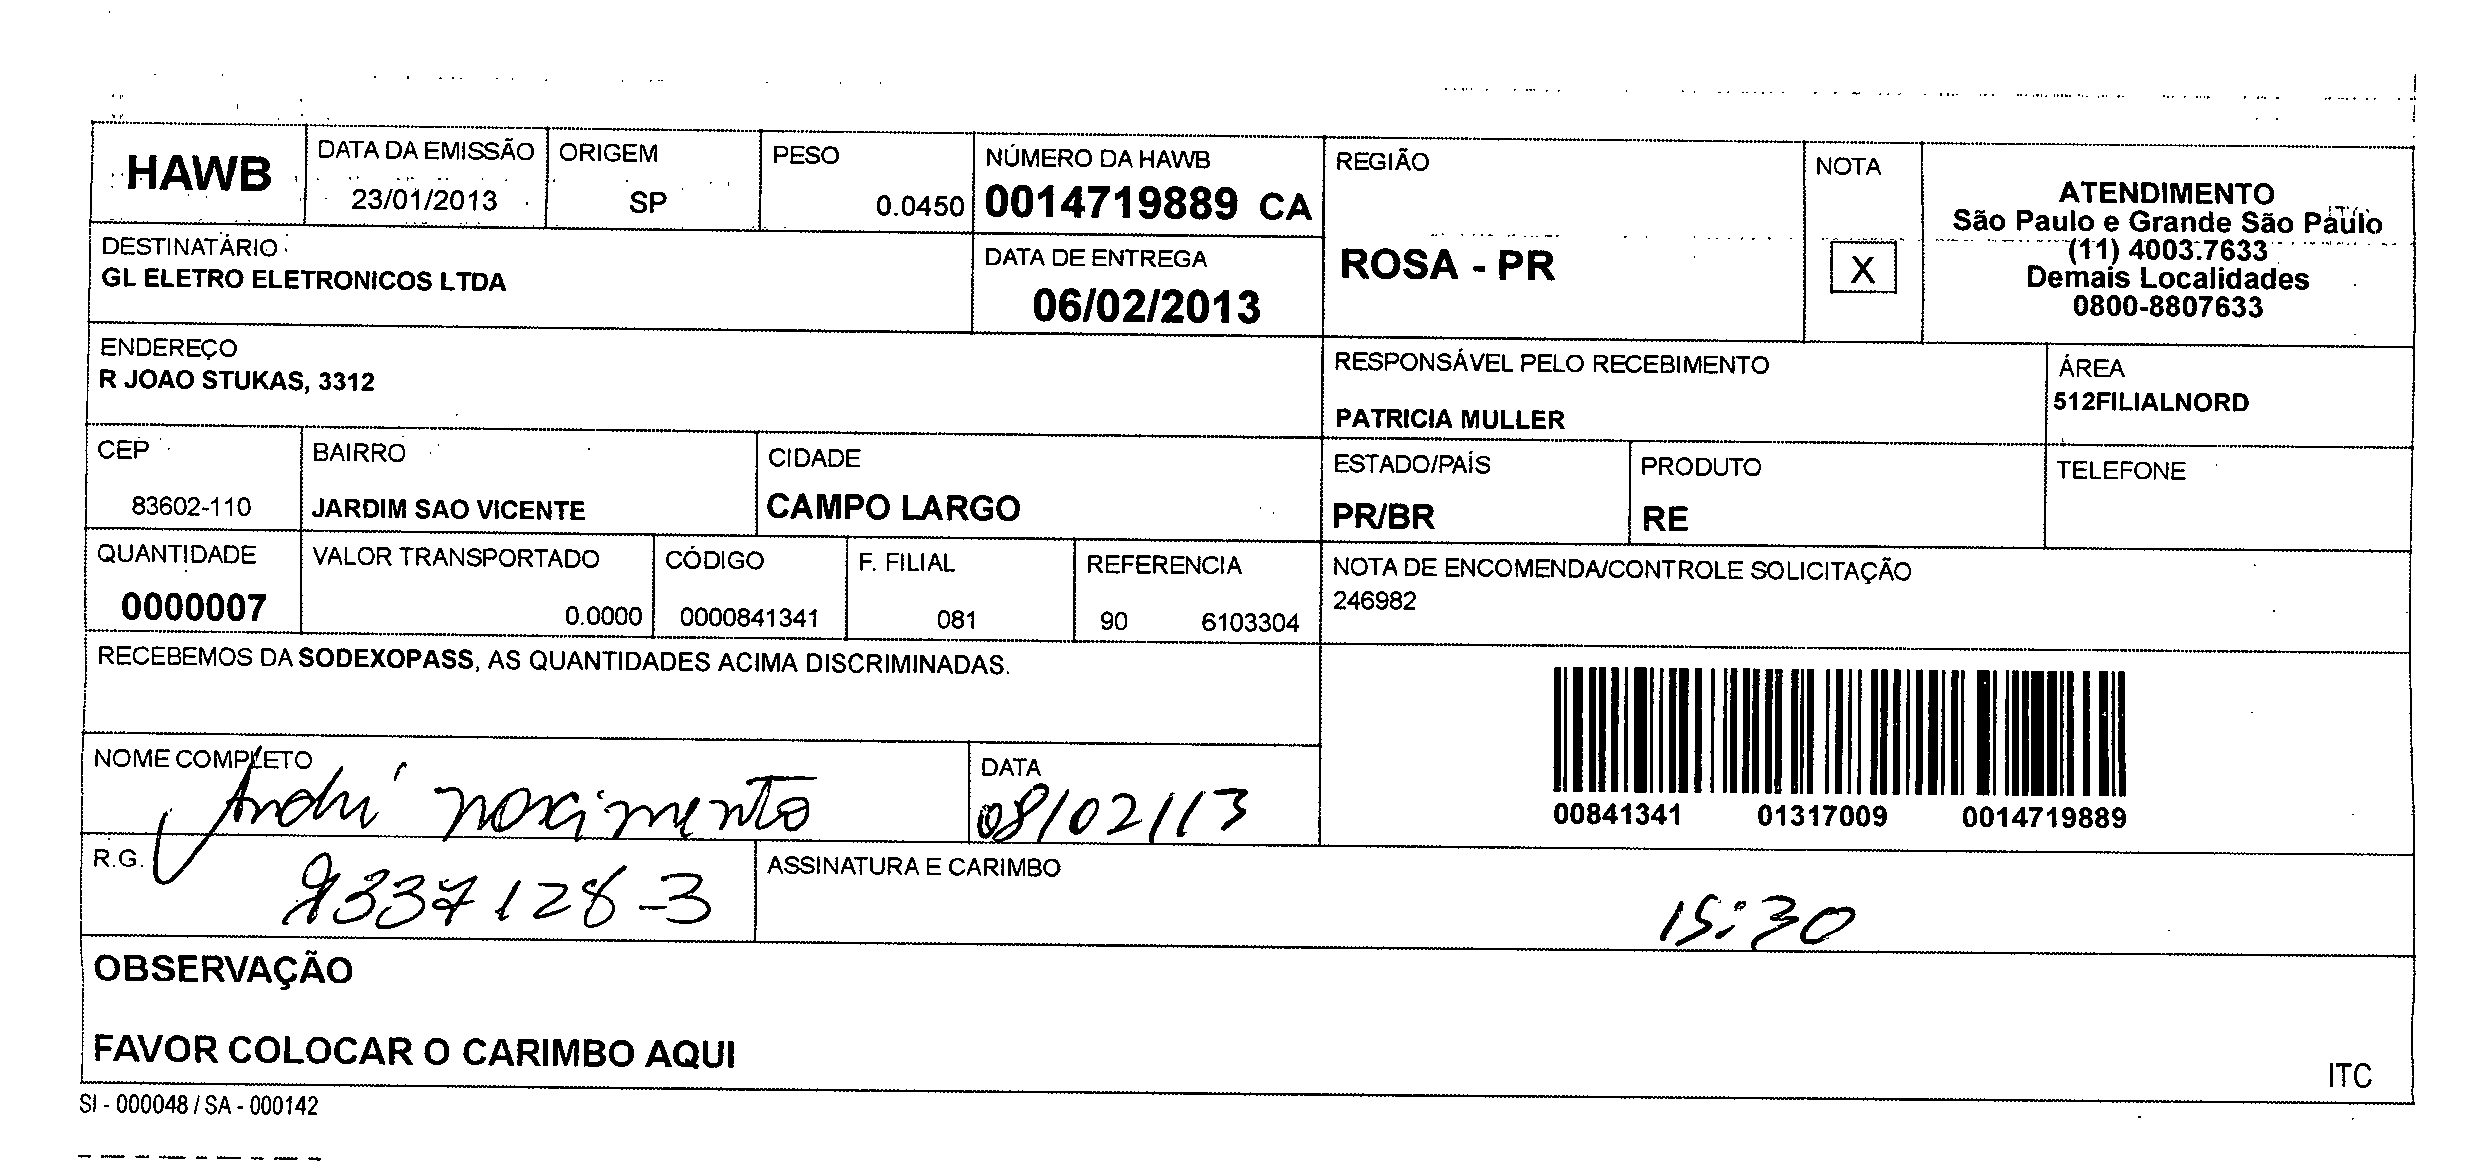 HAWB
DATA DA EMISSÃO
23/01/2013
ORIGEM
SP
PESO
0.0450
NÚMERO DA HAWB
0014719889 CA
REGIÃO
ROSA - PR
NOTA
X
ATENDIMENTO
São Paulo e Grande São Paulo
(11) 4003.7633
Demais Localidades
0800-8807633
DESTINATÁRIO
GL ELETRO ELETRONICOS LTDA
DATA DE ENTREGA
06/02/2013
ENDEREÇO
R JOAO STUKAS, 3312
RESPONSÁVEL PELO RECEBIMENTO
PATRICIA MULLER
ÁREA
512FILIALNORD
CEP
83602-110
BAIRRO
JARDIM SAO VICENTE
CIDADE
CAMPO LARGO
ESTADO/PAÍS
PR/BR
PRODUTO
RE
TELEFONE
QUANTIDADE
0000007
VALOR TRANSPORTADO
0.0000
CÓDIGO
0000841341
F. FILIAL
081
REFERENCIA
90 6103304
NOTA DE ENCOMENDA/CONTROLE SOLICITAÇÃO
246982
RECEBEMOS DA SODEXOPASS, AS QUANTIDADES ACIMA DISCRIMINADAS.
00841341 01317009 0014719889
NOME COMPLETO
André nascimento
DATA
08/02/13
R.G.
9337128-3
ASSINATURA E CARIMBO
15:30
OBSERVAÇÃO
FAVOR COLOCAR O CARIMBO AQUI
ITC
SI - 000048 / SA - 000142